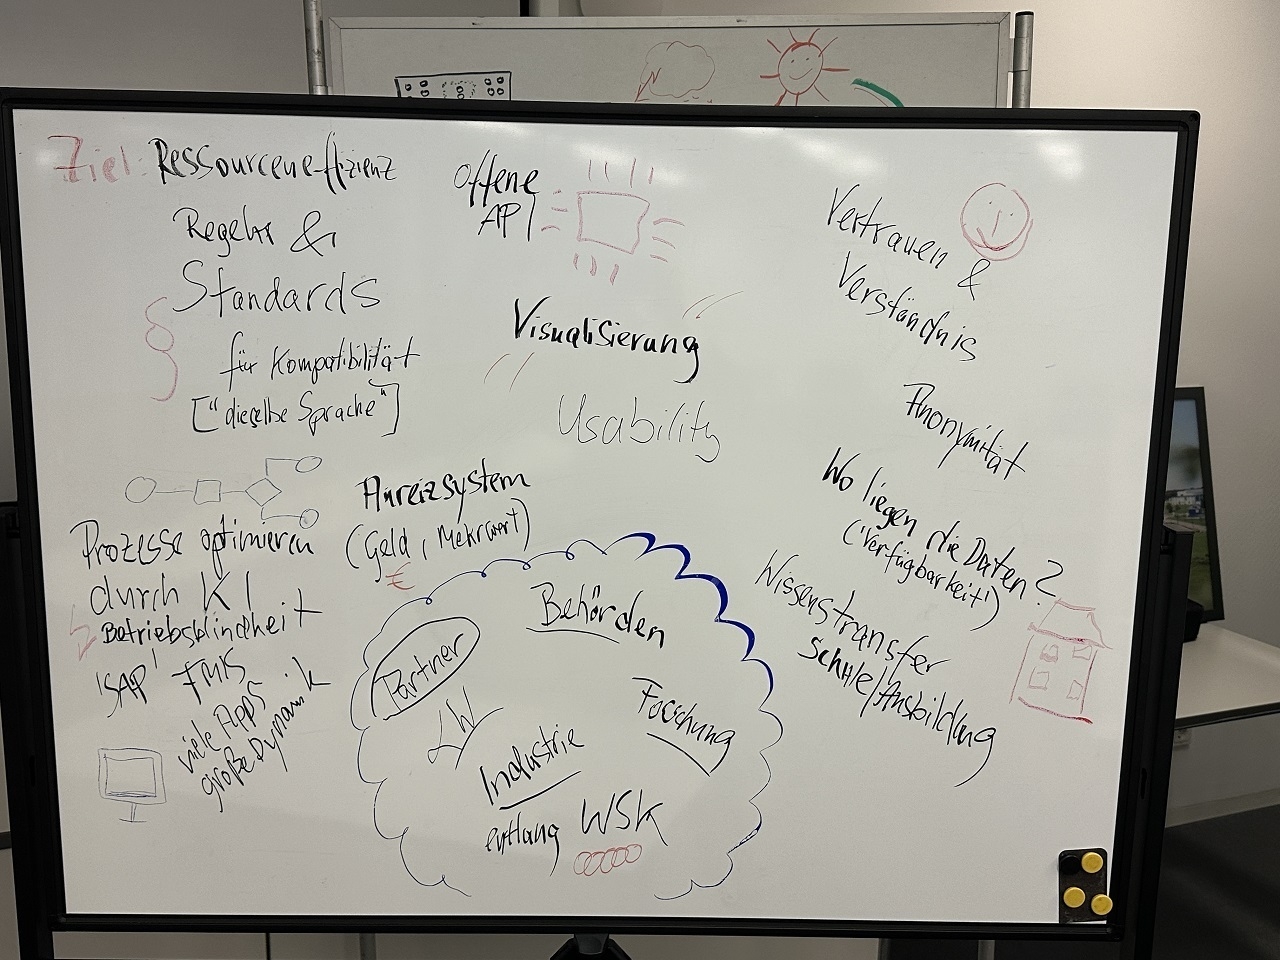 Ziel: Ressourceneffizienz
Regeln &
Standards
für Kompatibilität
["dieselbe Sprache"]
offene
API
Visualisierung
Usability
Vertrauen &
Verständnis
Anonymität
Wo liegen die Daten?
('Verfügbarkeit')
Wissenstransfer
Schule/Ausbildung
Anreizsystem
(Geld, Mehrwert)
€
Prozesse optimieren
durch KI
Betriebsblindheit
'SAP' FMIS
viele Apps
große Dynamik
Behörden
Partner
LW
Forschung
Industrie
entlang WSK